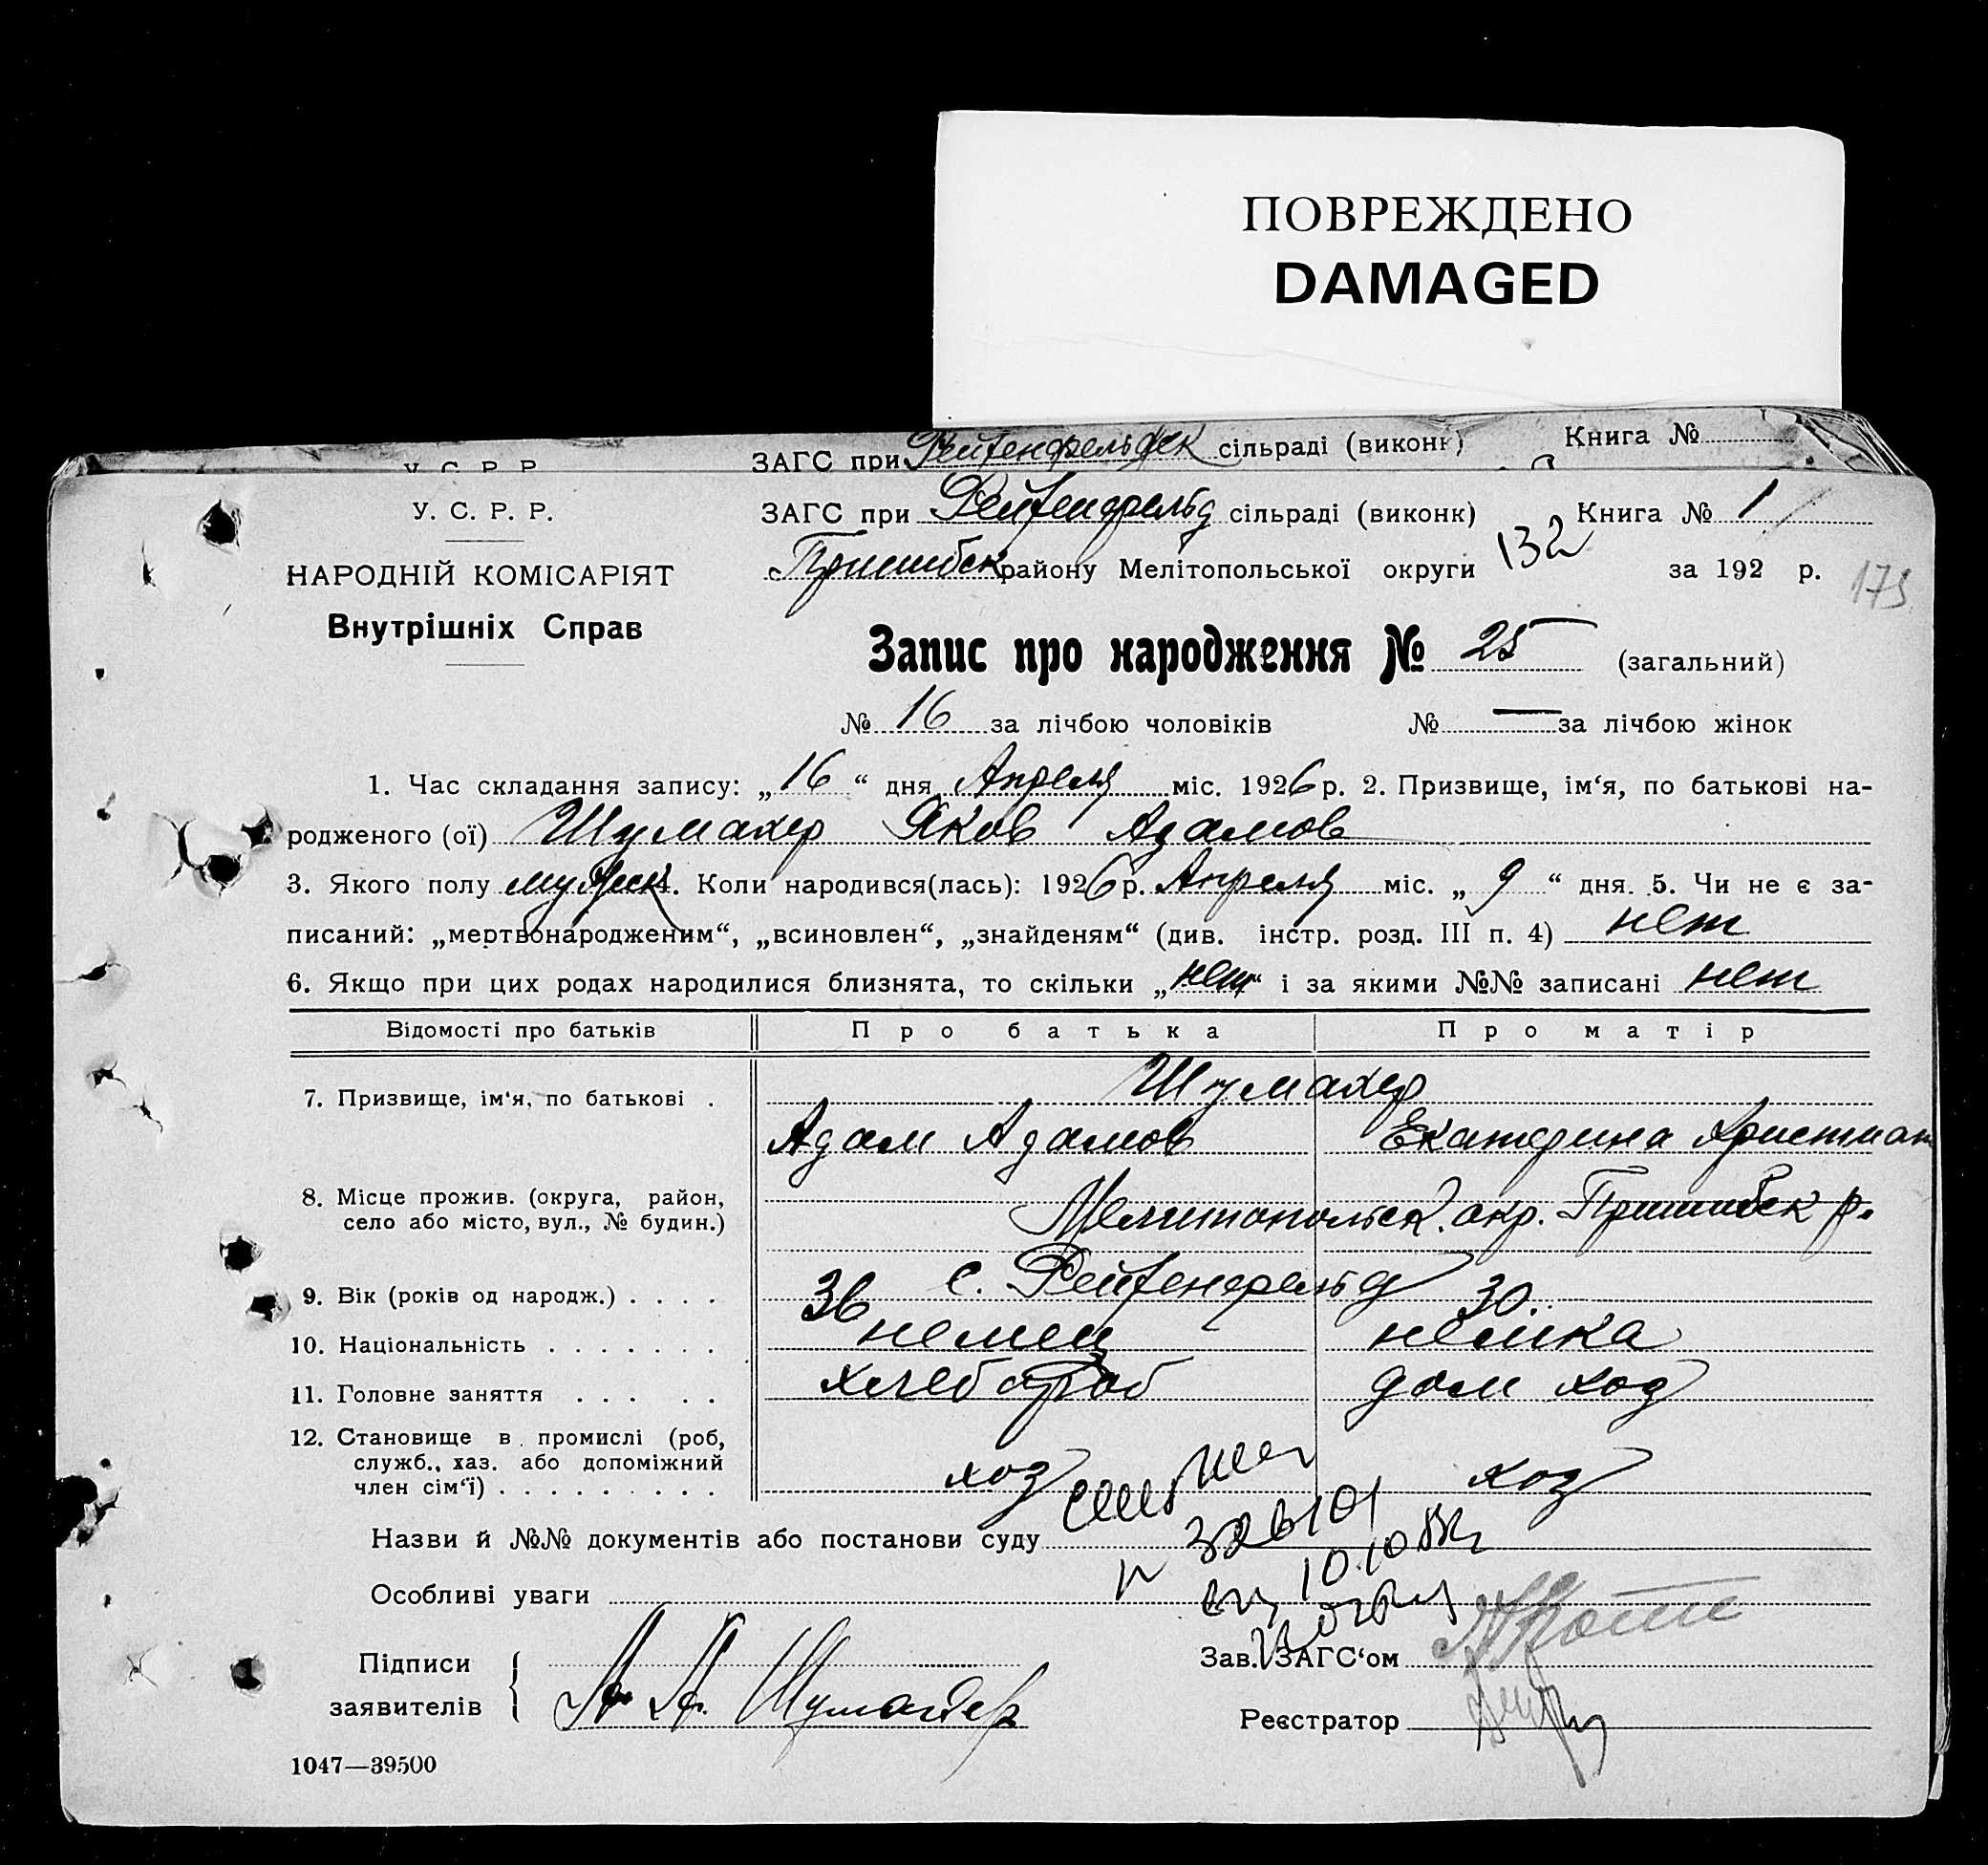 ПОВРЕЖДЕНО
DAMAGED
У. С. Р. Р. ЗАГС при Рейтенфельдск сільраді (виконк) Книга №
У. С. Р. Р. ЗАГС при Рейтенфельд сільраді (виконк) Книга № 1
НАРОДНІЙ КОМІСАРІЯТ Пришибск району Мелітопольської округи 132 за 192 р. 175
Внутрішніх Справ
Запис про народження № 25 (загальний)
№ 16 за лічбою чоловіків № — за лічбою жінок
1. Час складання запису: „16“ дня Апреля міс. 1926 р. 2. Призвище, ім‘я, по батькові на-
родженого (ої) Шумахер Яков Адамов
3. Якого полу мужск 4. Коли народився(лась): 1926 р. Апреля міс. „9“ дня. 5. Чи не є за-
писаний: „мертвонародженим“, „всиновлен“, „знайденям“ (див. інстр. розд. III п. 4) нет
6. Якщо при цих родах народилися близнята, то скільки „нет“ і за якими №№ записані нет
Відомості про батьків Про батька Про матір
7. Призвище, ім‘я, по батькові . Шумахер
Адам Адамов Екатерина Христиан
8. Місце прожив. (округа, район, Мелитопольск. окр. Пришибск р.
село або місто, вул., № будин.)
с. Рейтенфельд
9. Вік (років од народж.) . . . . 36 30
10. Національність . . . . . . . немец немка
11. Головне заняття . . . . . хлебороб дом хоз
12. Становище в промислі (роб,
служб., хаз. або допоміжний
член сім‘ї) . . . . . . . . . хоз хоз
Назви й №№ документів або постанови суду
326101
Особливі уваги
10.10
Підписи Зав. ЗАГС‘ом
заявителів { А. А. Шумахер
Реєстратор
1047—39500